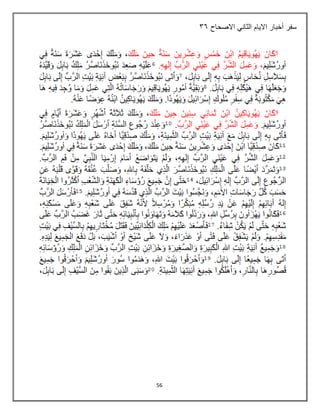 سفر أخبار الايام الثاني الاصحاح ٣٦
5كَانَ يَهُويَاقِيمُ ابْنَ خَمْسٍ وَعِشْرِينَ سَنَةً حِينَ مَلَكَ، وَمَلَكَ إِحْدَى عَشَرَةَ سَنَةً فِي
أُورُشَلِيمَ، وَعَمِلَ الشَّرَّ فِي عَيْنَيِ الرَّبِّ إِلهِهِ. 6عَلَيْهِ صَعِدَ نَبُوخَذْنَاصَّرُ مَلِكُ بَابِلَ وَقَيَّدَهُ
بِسَلاَسِلِ نُحَاسٍ لِيَذْهَبَ بِهِ إِلَى بَابِلَ، 7وَأَتَى نَبُوخَذْنَاصَّرُ بِبَعْضِ آنِيَةِ بَيْتِ الرَّبِّ إِلَى بَابِلَ
وَجَعَلَهَا فِي هَيْكَلِهِ فِي بَابِلَ. 8وَبَقِيَّةُ أُمُورِ يَهُويَاقِيمَ وَرَجَاسَاتُهُ الَّتِي عَمِلَ وَمَا وُجِدَ فِيهِ هَا
هِيَ مَكْتُوبَةٌ فِي سِفْرِ مُلُوكِ إِسْرَائِيلَ وَيَهُوذَا. وَمَلَكَ يَهُويَاكِينُ ابْنُهُ عِوَضًا عَنْهُ.
9كَانَ يَهُويَاكِينُ ابْنَ ثَمَانِي سِنِينَ حِينَ مَلَكَ، وَمَلَكَ ثَلاَثَةَ أَشْهُرٍ وَعَشَرَةَ أَيَّامٍ فِي
أُورُشَلِيمَ. وَعَمِلَ الشَّرَّ فِي عَيْنَيِ الرَّبِّ. 10وَعِنْدَ رُجُوعِ السَّنَةِ أَرْسَلَ الْمَلِكُ نَبُوخَذْنَاصَّرُ
فَأَتَى بِهِ إِلَى بَابِلَ مَعَ آنِيَةِ بَيْتِ الرَّبِّ الثَّمِينَةِ، وَمَلَّكَ صِدْقِيَّا أَخَاهُ عَلَى يَهُوذَا وَأُورُشَلِيمَ.
11كَانَ صِدْقِيَّا ابْنَ إِحْدَى وَعِشْرِينَ سَنَةً حِينَ مَلَكَ، وَمَلَكَ إِحْدَى عَشَرَةَ سَنَةً فِي أُورُشَلِيمَ.
12وَعَمِلَ الشَّرَّ فِي عَيْنَيِ الرَّبِّ إِلهِهِ، وَلَمْ يَتَوَاضَعْ أَمَامَ إِرْمِيَا النَّبِيِّ مِنْ فَمِ الرَّبِّ.
13وَتَمَرَّدَ أَيْضًا عَلَى الْمَلِكِ نَبُوخَذْنَاصَّرَ الَّذِي حَلَّفَهُ بِاللهِ، وَصَلَّبَ عُنُقَهُ وَقَوَّى قَلْبَهُ عَنِ
الرُّجُوعِ إِلَى الرَّبِّ إِلهِ إِسْرَائِيلَ، 14حَتَّى إِنَّ جَمِيعَ رُؤَسَاءِ الْكَهَنَةِ وَالشَّعْبِ أَكْثَرُوا الْخِيَانَةَ
حَسَبَ كُلِّ رَجَاسَاتِ الأُمَمِ، وَنَجَّسُوا بَيْتَ الرَّبِّ الَّذِي قَدَّسَهُ فِي أُورُشَلِيمَ. 15فَأَرْسَلَ الرَّبُّ
إِلهُ آبَائِهِمْ إِلَيْهِمْ عَنْ يَدِ رُسُلِهِ مُبَكِّرًا وَمُرْسِلاً لأَنَّهُ شَفِقَ عَلَى شَعْبِهِ وَعَلَى مَسْكَنِهِ،
16فَكَانُوا يَهْزَأُونَ بِرُسُلِ اللهِ، وَرَذَلُوا كَلاَمَهُ وَتَهَاوَنُوا بِأَنْبِيَائِهِ حَتَّى ثَارَ غَضَبُ الرَّبِّ عَلَى
شَعْبِهِ حَتَّى لَمْ يَكُنْ شِفَاءٌ. 17فَأَصْعَدَ عَلَيْهِمْ مَلِكَ الْكِلْدَانِيِّينَ فَقَتَلَ مُخْتَارِيهِمْ بِالسَّيْفِ فِي بَيْتِ
مَقْدِسِهِمْ. وَلَمْ يَشْفِقْ عَلَى فَتًى أَوْ عَذْرَاءَ، وَلاَ عَلَى شَيْخٍ أَوْ أَشْيَبَ، بَلْ دَفَعَ الْجَمِيعَ لِيَدِهِ.
18وَجَمِيعُ آنِيَةِ بَيْتِ اللهِ الْكَبِيرَةِ وَالصَّغِيرَةِ، وَخَزَائِنِ بَيْتِ الرَّبِّ وَخَزَائِنِ الْمَلِكِ وَرُؤَسَائِهِ
أَتَى بِهَا جَمِيعًا إِلَى بَابِلَ. 19وَأَحْرَقُوا بَيْتَ اللهِ، وَهَدَمُوا سُورَ أُورُشَلِيمَ وَأَحْرَقُوا جَمِيعَ
قُصُورِهَا بِالنَّارِ، وَأَهْلَكُوا جَمِيعَ آنِيَتِهَا الثَّمِينَةِ. 20وَسَبَى الَّذِينَ بَقُوا مِنَ السَّيْفِ إِلَى بَابِلَ،
56